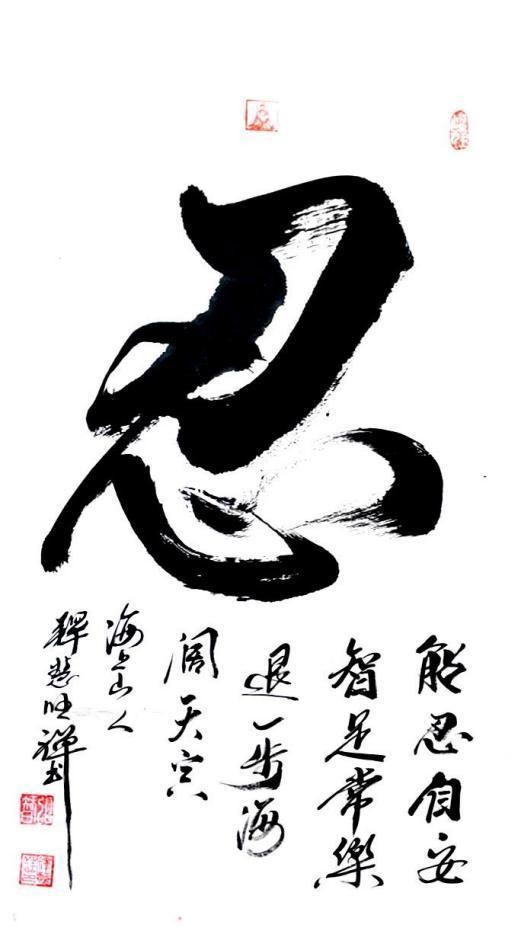 忍
能忍自安
智足常樂
退一步海
阔天空
海上山人
釋慧